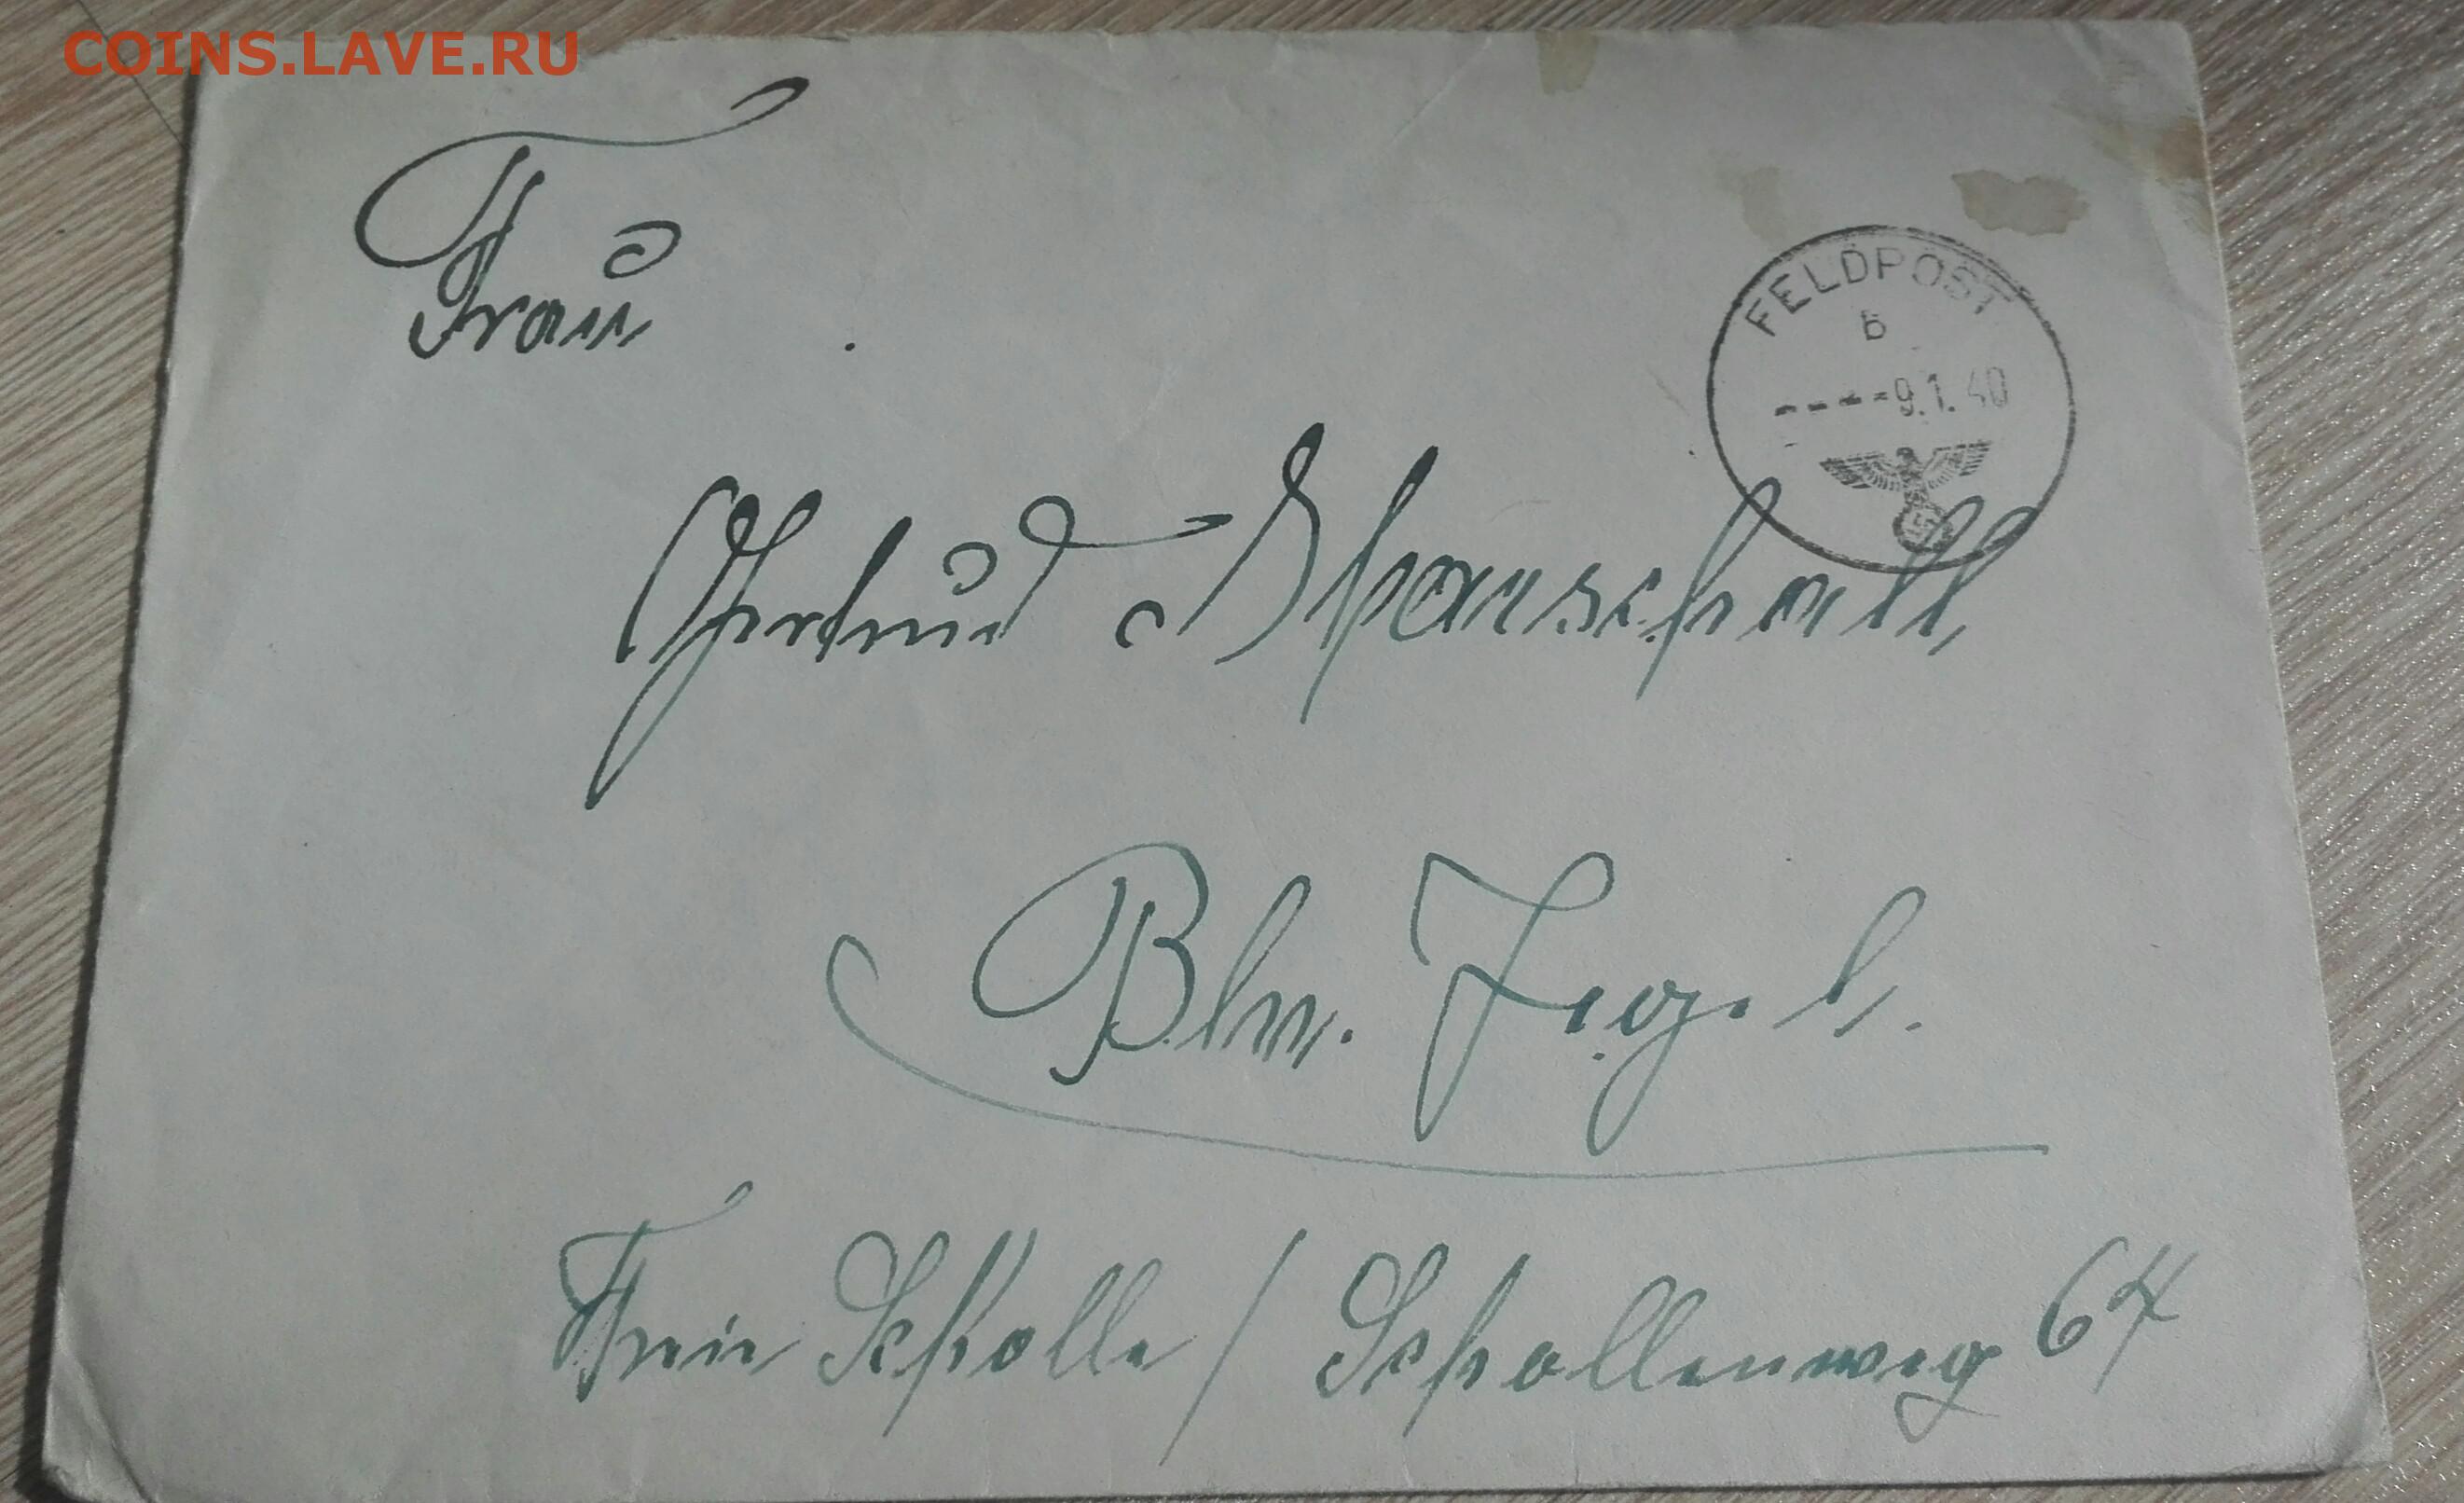 COINS.LAVE.RU
Frau
FELDPOST
b
----9.1.40
Gertrud
Bln. Tegel.
Freie Scholle / Schollenweg 64